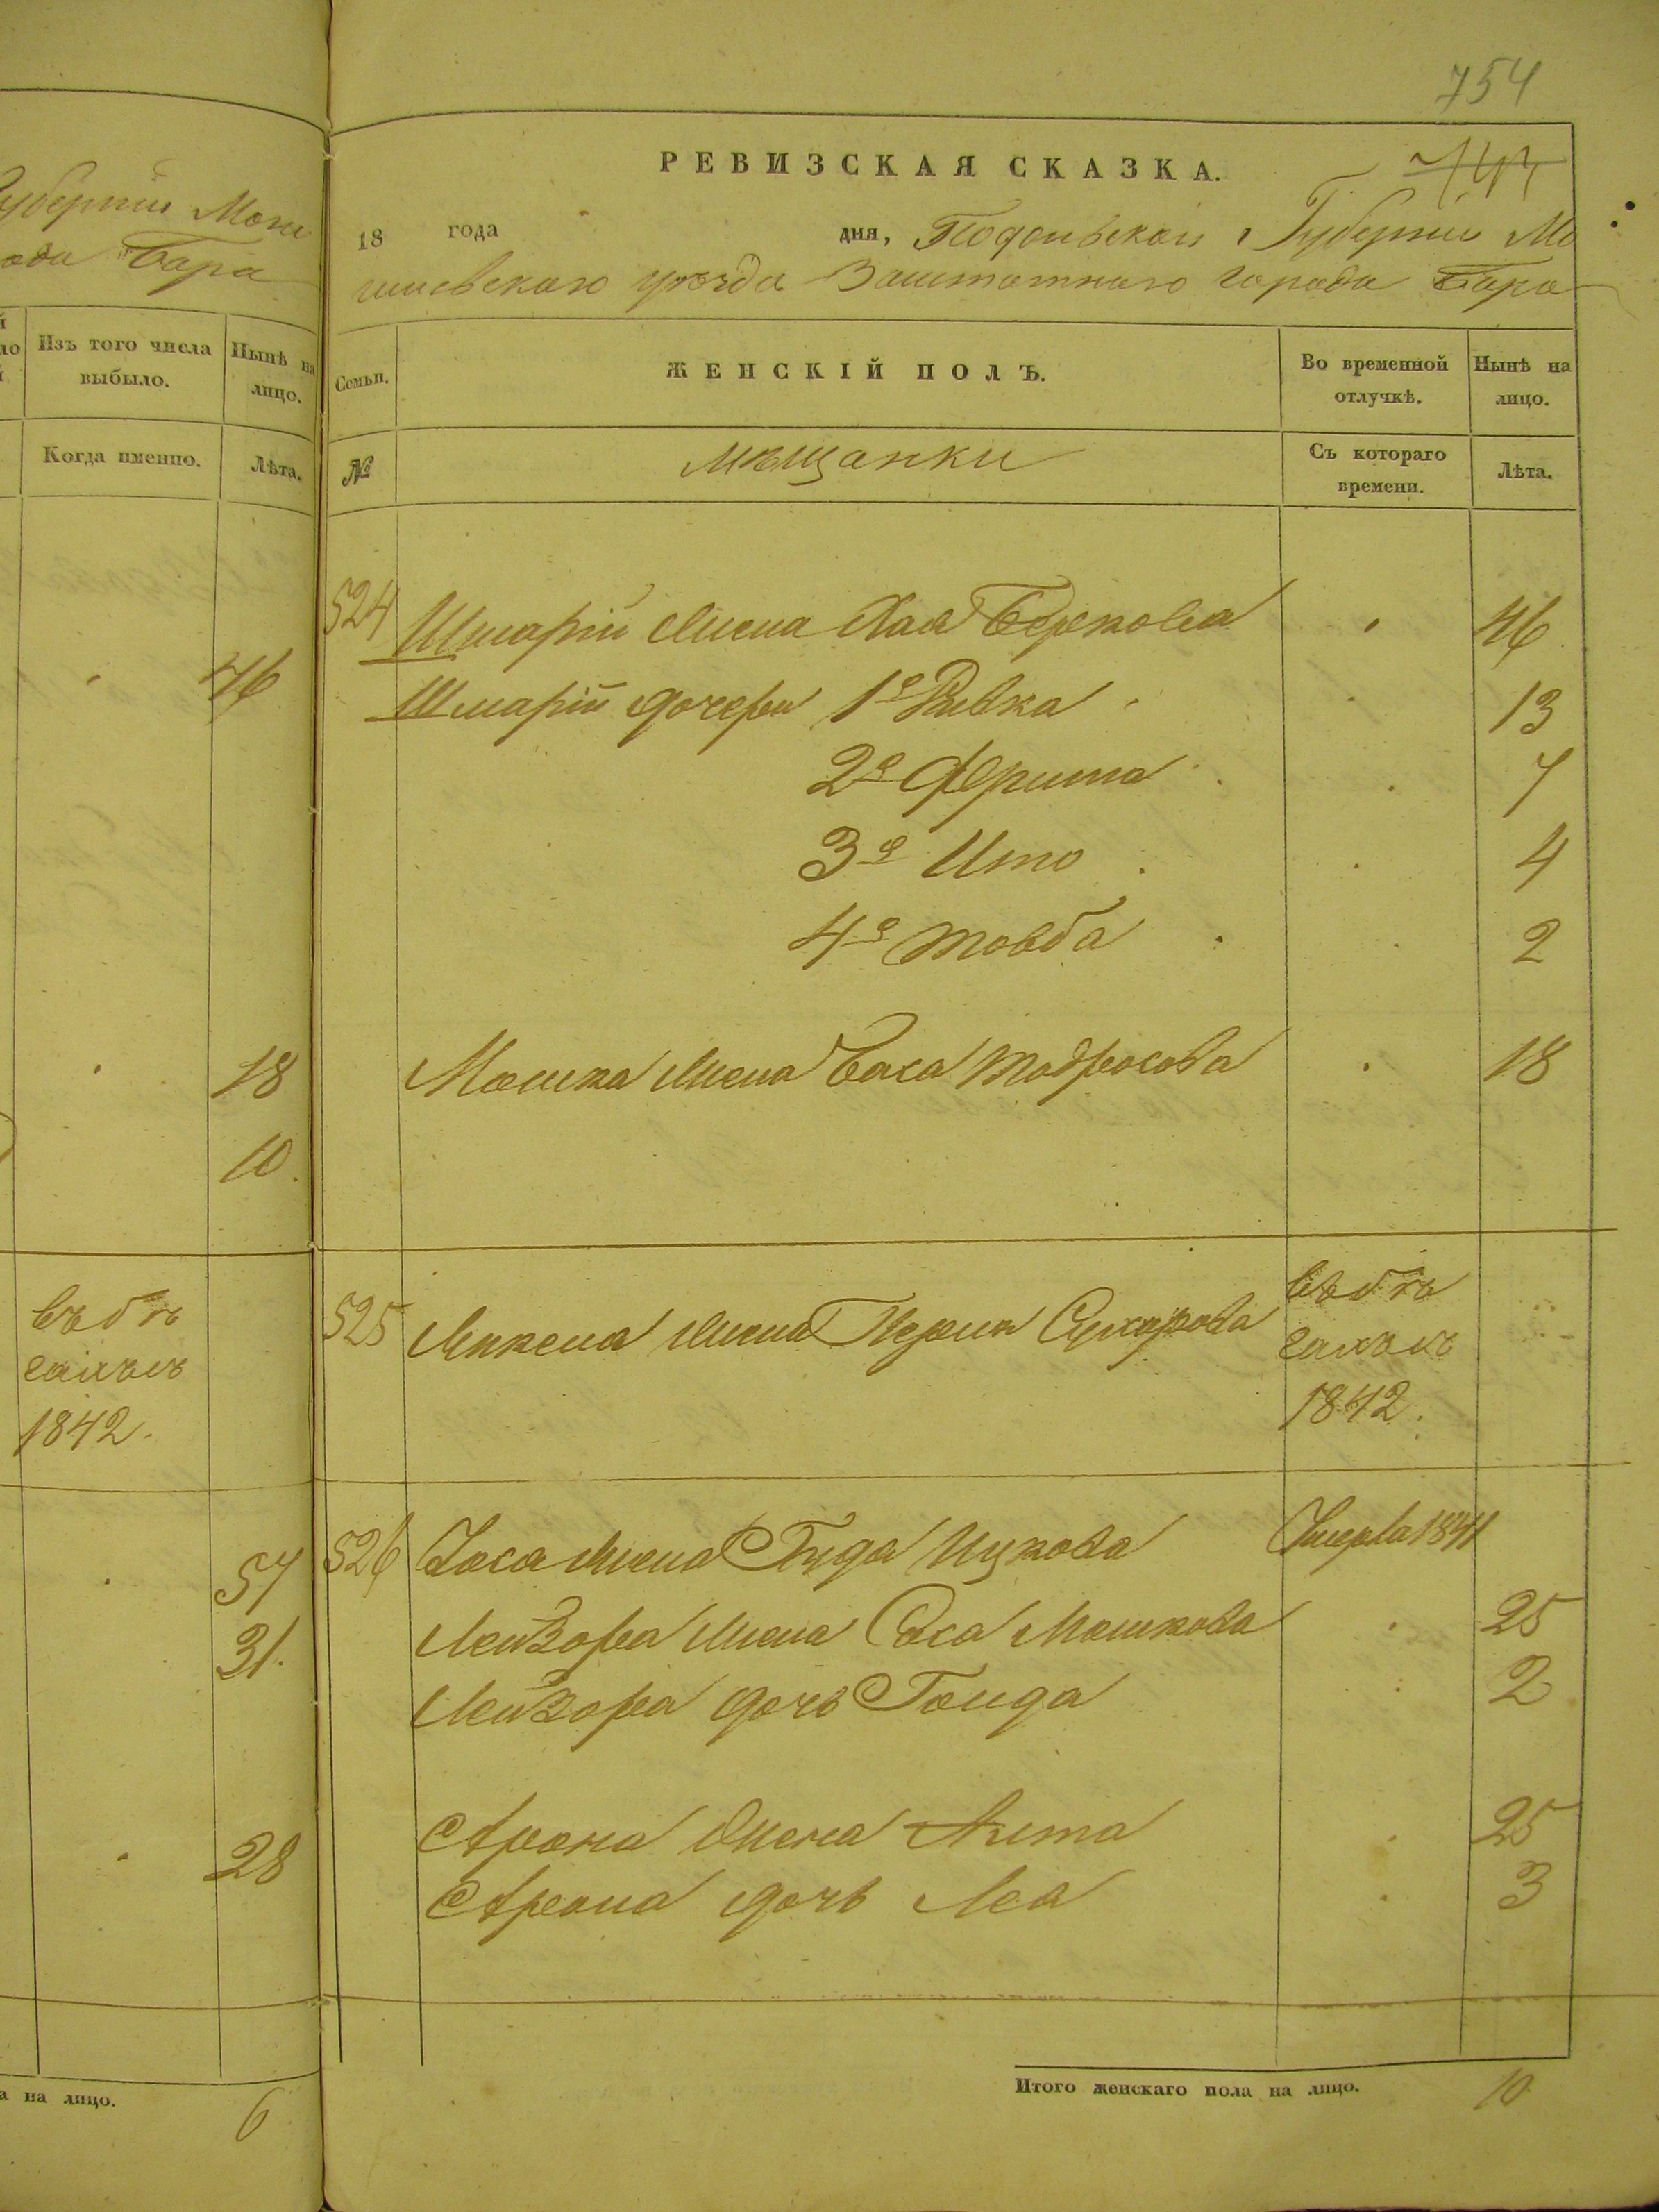 губернiи Моги
ода Бара
Изъ того числа выбыло.
Нынѣ на лицо.
Когда именно.
Лѣта.
46
18
10.
въ бѣ
гахъ съ
1842.
57
31.
28
а на лицо.
6
754
РЕВИЗСКАЯ СКАЗКА.
18 года дня, Подольской Губернiи Мо
гилевскаго уѣзда Заштатнаго города Бара
Семьи.
ЖЕНСКIЙ ПОЛЪ.
Во временной отлучкѣ.
Нынѣ на лицо.
№
мѣщанки
Съ котораго времени.
Лѣта.
524 Шмарiи жена Хая Беркова 46
Шмарiи дочери 1я Ривка 13
2я Фрима 7
3я Ита 4
4я Товба 2
Мошка жена Бася Тодросова 18
525 жена Перля въ бѣ
гахъ съ
1842.
526 Іося жена Гинда Ицкова Умерла 1841
Лейзора жена Сося Мошкова 25
Лейзора дочь Гинда 2
Арона жена 25
Арона дочь Лея 3
Итого женскаго пола на лицо. 10